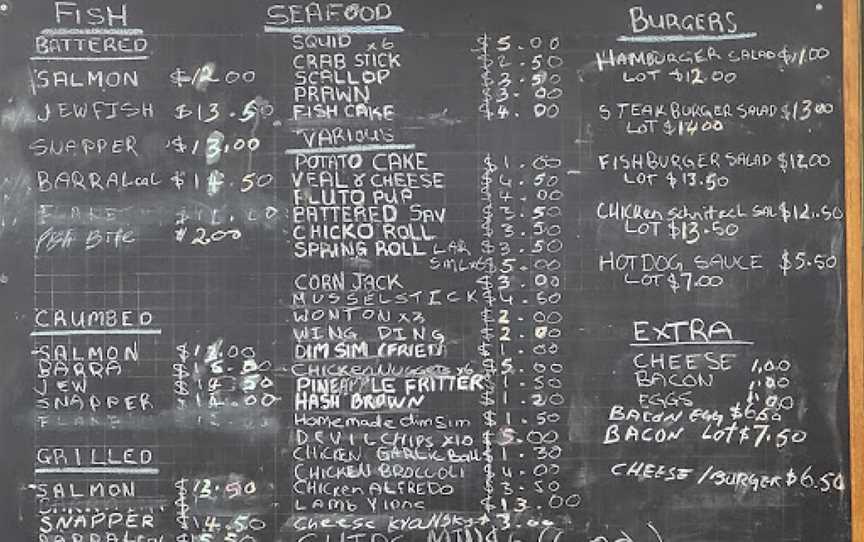 FISH
BATTERED
SALMON $12.00
JEWFISH $13.50
SNAPPER $13.00
BARRA $14.50
FLAKE
FISH BITE $2.00
CRUMBED
SALMON $13.00
BARRA
JEW $14.50
SNAPPER $14.00
FLAKE
GRILLED
SALMON $13.50
SNAPPER $14.50
SEAFOOD
SQUID x6 $5.00
CRAB STICK $2.50
SCALLOP $3.50
PRAWN $3.00
FISH CAKE $4.00
VARIOUS
POTATO CAKE $1.00
VEAL & CHEESE $4.50
PLUTO PUP $4.00
BATTERED SAV $3.50
CHICKO ROLL $3.50
SPRING ROLL LAR $3.50
SMLx6 $5.00
CORN JACK $3.00
MUSSELSTICK $4.50
WONTON x3 $2.00
WING DING $2.00
DIM SIM (FRIED) $1.00
CHICKEN NUGGETS x6 $5.00
PINEAPPLE FRITTER $1.50
HASH BROWN $1.20
Homemade dim Sim $1.50
DEVIL CHIPS x10 $5.00
CHICKEN GARLIC Ball $1.30
CHICKEN BROCCOLI $4.00
CHICKEN ALFREDO $3.50
LAMB $13.00
cheese $3.00
BURGERS
HAMBURGER SALAD $11.00
LOT $12.00
STEAK BURGER SALAD $13.00
LOT $14.00
FISH BURGER SALAD $12.00
LOT $13.50
CHICKEN Schnitzel SAL $12.50
LOT $13.50
HOTDOG SAUCE $5.50
LOT $7.00
EXTRA
CHEESE 1.00
BACON 1.00
EGGS 1.00
BACON EGG $6.50
BACON LOT $7.50
CHEESE / BURGER $6.50